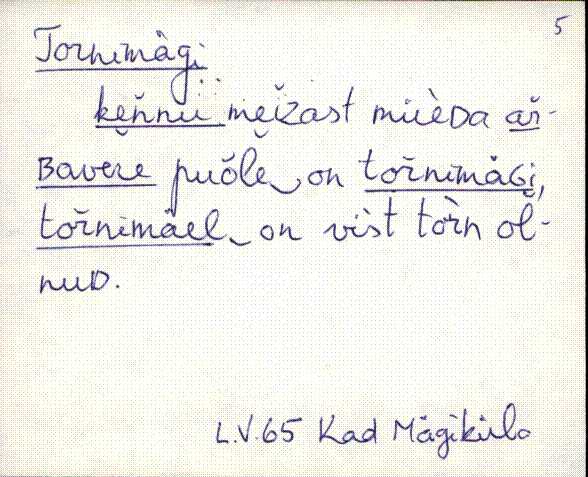 5
Tornimägi
kĕǹnü mĕìzast mùèDa ař-
Bavere puŏle‿on tořnimäGi̮,
tořnimäel‿on vìst tòrn ol̆-
nuD.
L.V.65 Kad Mägiküla